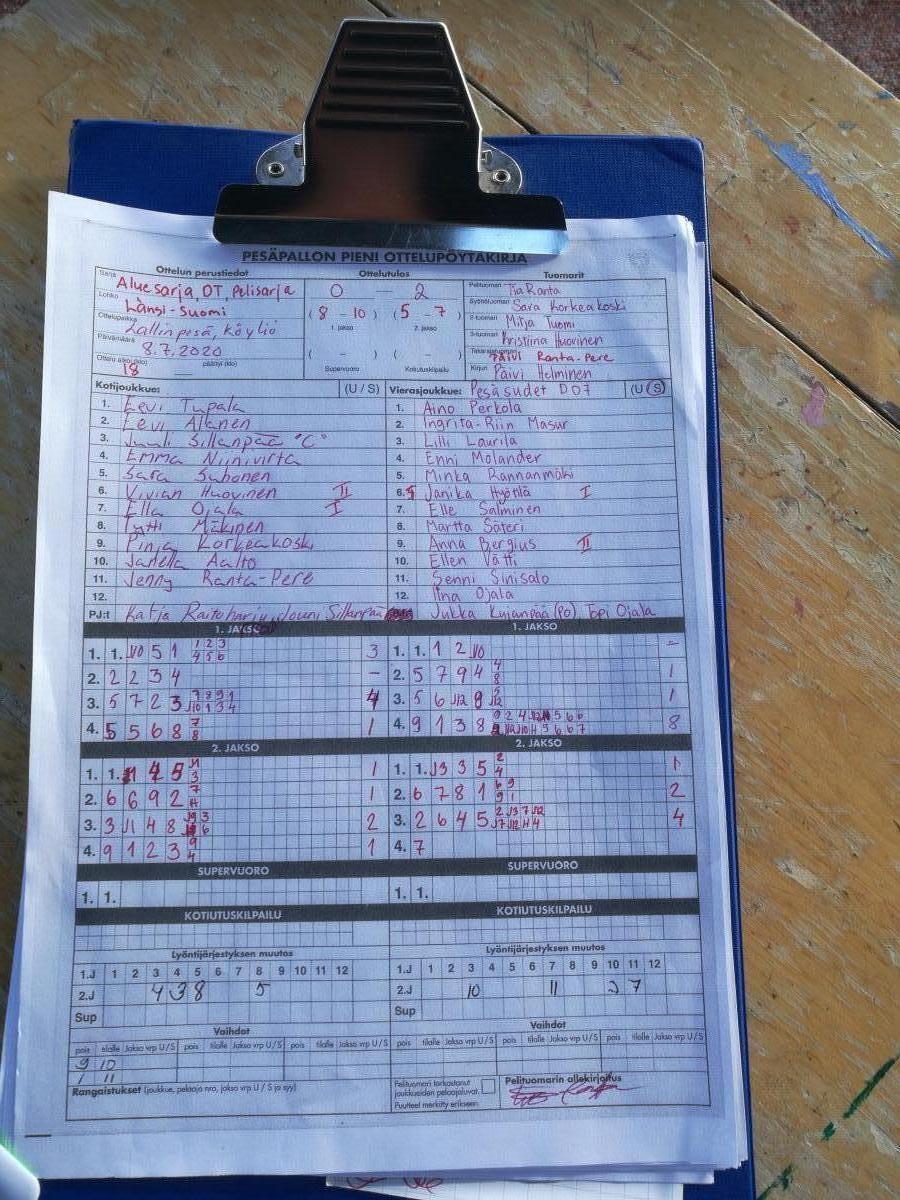 PESÄPALLON PIENI OTTELUPÖYTÄKIRJA
Ottelun perustiedot
Sarja Aluesarja, DT, Pelisarja
Lohko Länsi-Suomi
Ottelupaikka Lallinpesä, Köyliö
Päivämäärä 8.7.2020
Ottelu alkoi (klo) 18 päättyi (klo)
Ottelutulos
0 — 2
(8 - 10) (5 - 7)
1. jakso 2. jakso
( - ) ( - )
Supervuoro Kotiutuskilpailu
Tuomarit
Pelituomari Tia Ranta
Syöttötuomari Sara Korkeakoski
2-tuomari Mitja Tuomi
3-tuomari Kristiina Huovinen
Takarajatuomari Päivi Ranta-Pere
Kirjuri Päivi Helminen
Kotijoukkue: (U / S)
1. Eevi Tupala
2. Eevi Alanen
3. Juuli Sillanpää "C"
4. Emma Niinivirta
5. Sara Suhonen
6. Vivian Huovinen II
7. Ella Ojala I
8. Pytti Mäkinen
9. Pinja Korkeakoski
10. Janella Aalto
11. Jenny Ranta-Pere
12.
PJ:t Katja Raitoharju, Jouni Sillanpää
Vierasjoukkue: Pesäsudet D07 (U / S)
1. Aino Perkola
2. Ingrita-Riin Masur
3. Lilli Laurila
4. Enni Molander
5. Minka Rannanmäki
6. Janika Hyötilä I
7. Elle Salminen
8. Martta Säteri
9. Anna Bergius II
10. Ellen Vätti
11. Senni Sinisalo
12. Iina Ojala
Jukka Kujanpää (PO) Topi Ojala
1. JAKSO
1. 1. J10 5 1 1 2 3 3
4 5 6
2. 2 2 3 4 -
3. 5 7 2 3 7 8 9 1 4
J10 1 3 4
4. 5 5 6 8 7 1
8
1. JAKSO
1. 1. 1 2 J10 -
2. 5 7 9 4 4 1
8
3. 5 6 J12 9 1
J12
4. 9 1 3 8 8
2. JAKSO
1. 1. 4 5 J1 1
3
2. 6 6 9 2 7 1
3. 3 J1 4 8 2
4. 9 1 2 3 9 1
4
2. JAKSO
1. 1. J3 3 5 2 1
4
2. 6 7 8 1 6 9 2
9 1
3. 2 6 4 5 2 J3 7 J12 4
4. 7
SUPERVUORO
1. 1.
SUPERVUORO
1. 1.
KOTIUTUSKILPAILU
KOTIUTUSKILPAILU
Lyöntijärjestyksen muutos
1.J 1 2 3 4 5 6 7 8 9 10 11 12
2.J 4 3 8 5
Sup
Lyöntijärjestyksen muutos
1.J 1 2 3 4 5 6 7 8 9 10 11 12
2.J 10 11 2 7
Sup
Vaihdot
pois tilalle Jakso vrp U / S pois tilalle Jakso vrp U / S pois tilalle Jakso vrp U / S
9 10
1 11
Vaihdot
pois tilalle Jakso vrp U / S pois tilalle Jakso vrp U / S pois tilalle Jakso vrp U / S
Rangaistukset (joukkue, pelaaja nro, jakso vrp U / S ja syy)
Pelituomari tarkastanut
joukkueiden pelaajaluvat.
Puutteet merkitty erikseen.
Pelituomarin allekirjoitus